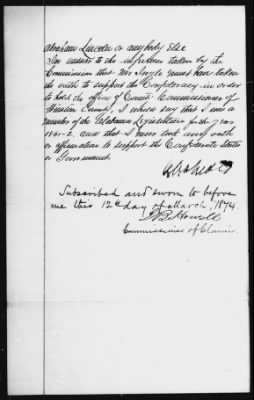 Abraham Lincoln or any body else
In answer to the inference taken by the
Commission that Mr Ingle must have taken
the oath to support the Confederacy in order
to hold the office of County Commissioner of
Winston County, I would say that I was a
member of the Alabama Legislature for the year
1861-2, and that I never took any oath
or affirmation to support the Confederate States
or Government
Subscribed and sworn to before
me this 12th day of March, 1874.
Howell
Commissioner of Claims.